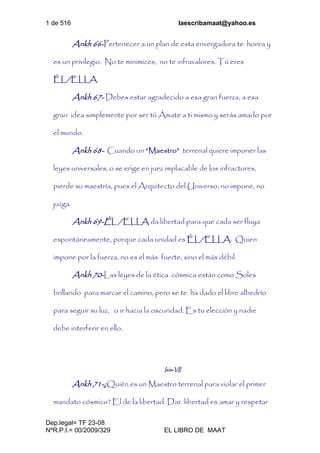 1 de 516 laescribamaat@yahoo.es
Ankh 66-Pertenecer a un plan de esta envergadura te honra y
es un privilegio. No te minimices, no te infravalores. Tú eres
ÉL/ELLA.
Ankh 67- Debes estar agradecido a esa gran fuerza, a esa
gran idea simplemente por ser tú Ámate a ti mismo y serás amado por
el mundo.
Ankh 68- Cuando un “Maestro” terrenal quiere imponer las
leyes universales, o se erige en juez implacable de los infractores,
pierde su maestría, pues el Arquitecto del Universo, no impone, no
juzga.
Ankh 69-ÉL/ELLA da libertad para que cada ser fluya
espontáneamente, porque cada unidad es ÉL/ELLA. Quien
impone por la fuerza, no es el más fuerte, sino el más débil.
Ankh 70-Las leyes de la ética cósmica están como Soles
brillando para marcar el camino, pero se te ha dado el libre albedrío
para seguir su luz, o ir hacia la oscuridad. Es tu elección y nadie
debe interferir en ello.
Iris-VII
Ankh 71-¿Quién es un Maestro terrenal para violar el primer
mandato cósmico? El de la libertad. Dar libertad es amar y respetar
Dep.legal= TF 23-08
NºR.P.I.= 00/2009/329 EL LIBRO DE MAAT